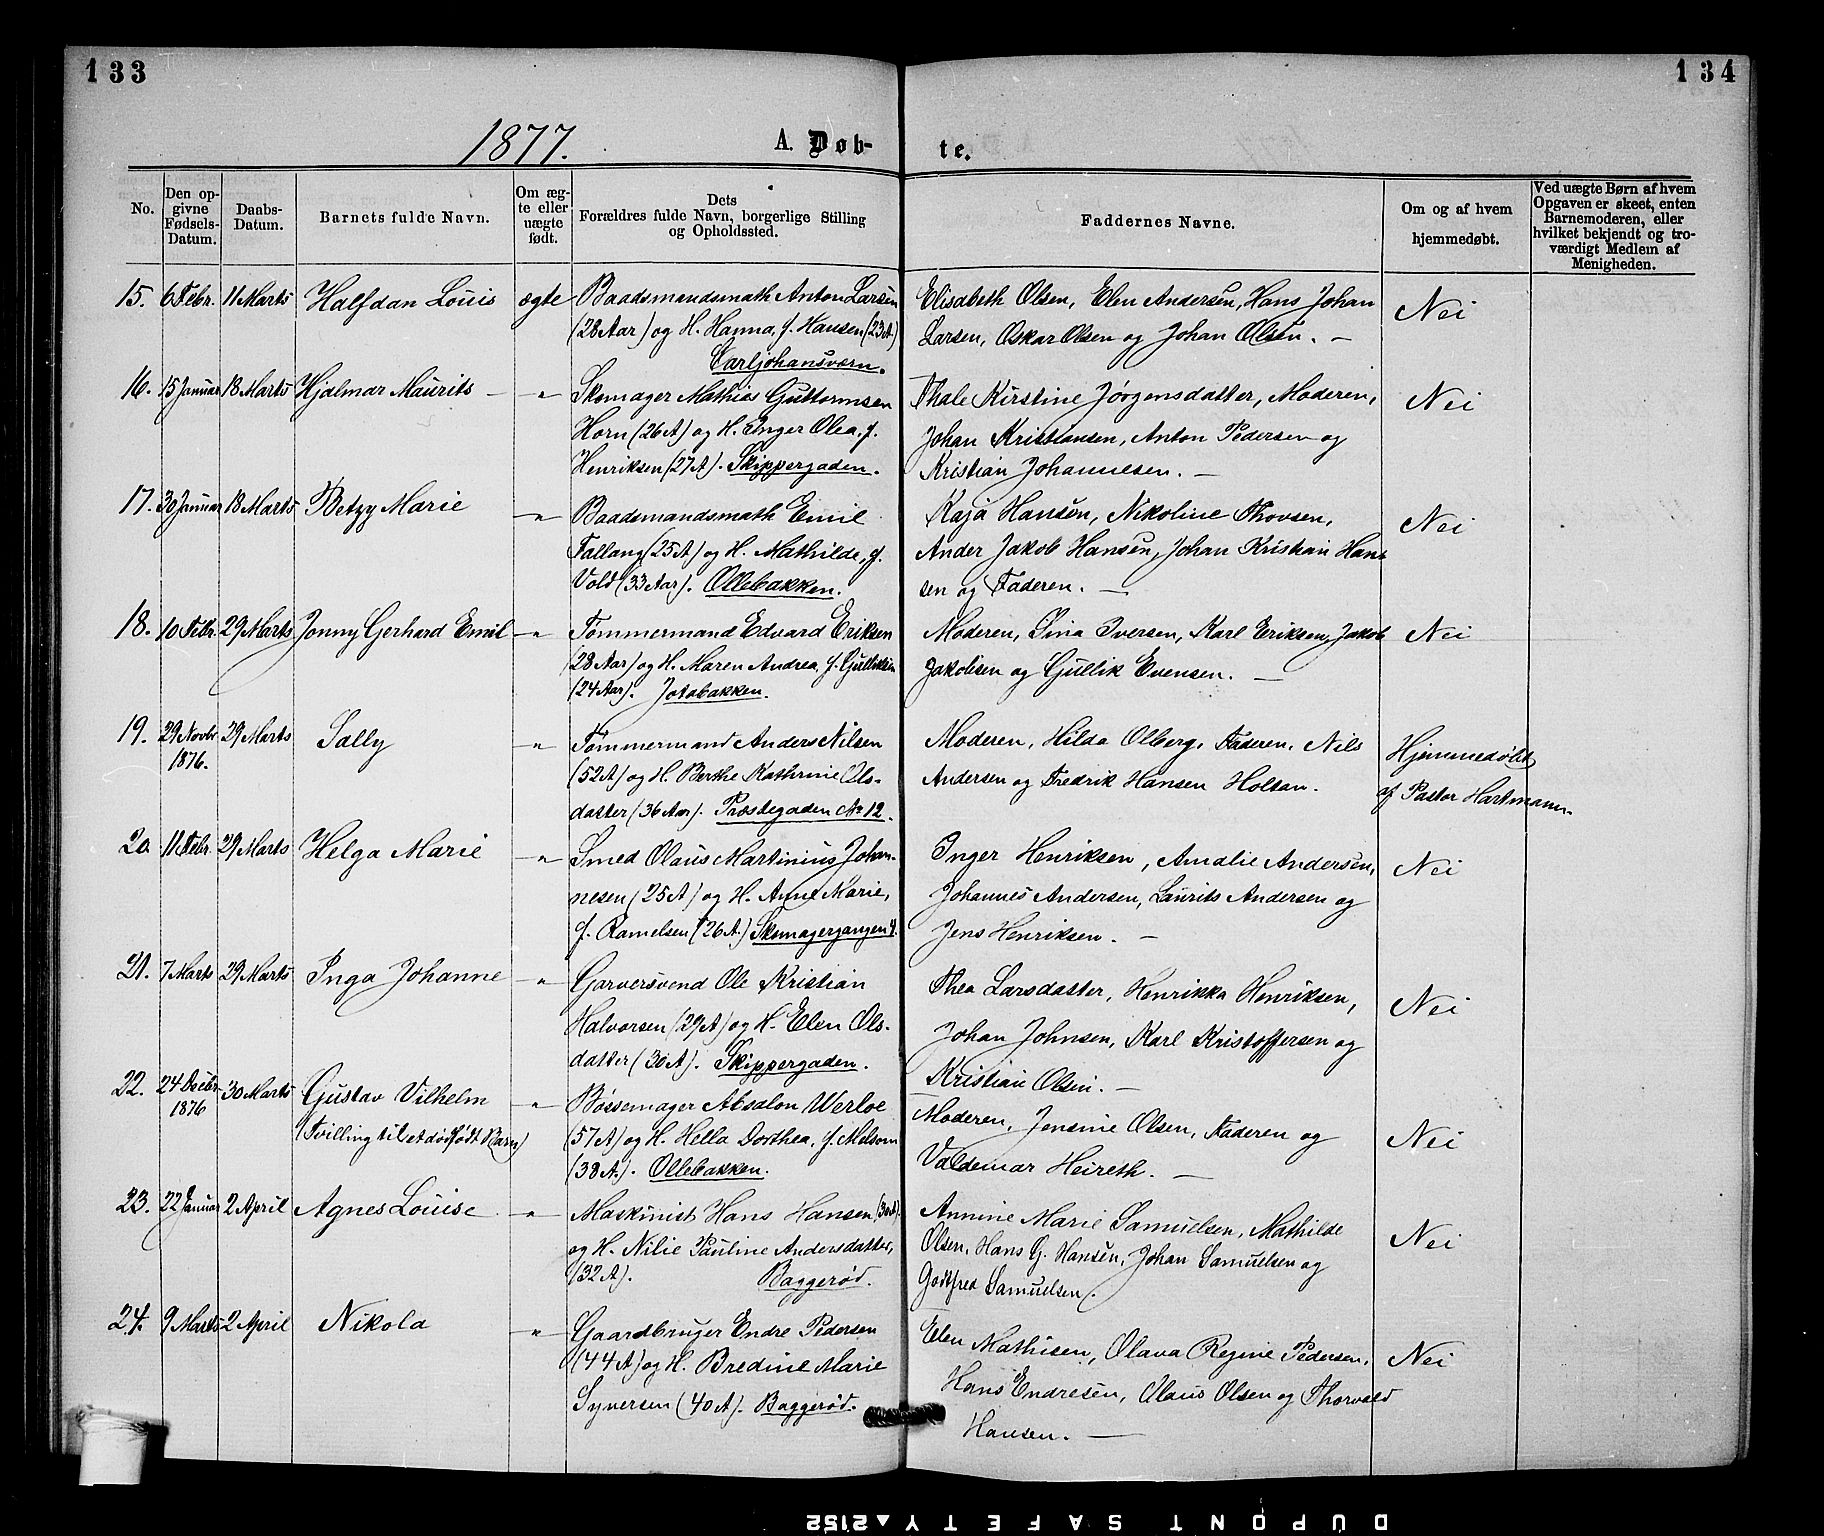 133
134
1877.
A. Døb-
te.
No.
Den op-
givne
Fødsels-
Datum.
Daabs-
Datum.
Barnets fulde Navn.
Om æg-
te eller
uægte
født.
Dets
Forældres fulde Navn, borgerlige Stilling
og Opholdssted.
Faddernes Navne.
Om og af hvem
hjemmedøbt.
Ved uægte Børn af hvem
Opgaven er skeet, enten
Barnemoderen, eller
hvilket bekjendt og tro-
værdigt Medlem af
Menigheden.
15. 6 Febr. 11 Marts Halfdan Louis ægte Baadsmandsmath Anton Larsen
(28 Aar) og H. Hanna, f. Hansen (23 A)
Carljohansværn.
Elisabeth Olsen, Elen Andersen, Hans Johan
Larsen, Oskar Olsen og Johan Olsen. —
Nei
16. 15 Januar 18 Marts Hjalmar Maurits — „ Skomager Mathias Guttormsen
Horn (26 A) og H. Inger Olea, f.
Henriksen (27 A). Skippergaden.
Thale Kirstine Jørgensdatter, Moderen,
Johan Kristiansen, Anton Pedersen og
Kristian Johannesen. —
Nei
17. 30 Januar 18 Marts Betzy Marie — „ Baadsmandsmath Emil
Fallang (25 A) og H. Mathilde, f.
Vold (33 Aar). Ollebakken.
Kaja Hansen, Nikoline Thovsen,
Ander Jakob Hansen, Johan Kristian Han-
sen og Faderen. —
Nei
18. 10 Febr. 29 Marts Jonny Gerhard Emil — „ Tømmermand Edvard Eriksen
(28 Aar) og H. Maren Andrea, f. Gulliksen
(24 Aar). Jotabakken.
Moderen, Lina Iversen, Karl Eriksen, Jakob
Jakobsen og Gullik Evensen. —
Nei
19. 29 Novbr 29 Marts Sally „ Tømmermand Anders Nilsen
1876.
(52 A) og H. Berthe Kathrine Ols-
datter (36 Aar). Præstegaden No 12.
Moderen, Hilda Olberg, Faderen, Nils
Andersen og Fredrik Hansen Holtan.
Hjemmedøbt
af Pastor Hartmann.
20 11 Febr. 29 Marts Helga Marie — „ Smed Olaus Martinius Johan-
nesen (25 A) og H. Anne Marie,
f. Ramelsen (26 A.) Skomagergangen 4.
Inger Henriksen, Amalie Andersen,
Johannes Andersen, Laurits Andersen og
Jens Henriksen. —
Nei
21. 7 Marts 29 Marts Inga Johanne — „ Garversvend Ole Kristian
Halvorsen (29 A) og H. Elen Ols-
datter (30 A). Skippergaden.
Thea Larsdatter, Henrikka Henriksen,
Johan Johnsen, Karl Kristoffersen og
Kristian Olsen. —
Nei
22. 24 Decbr 30 Marts Gustav Vilhelm — „ Bøssemager Absalon Werloe
1876
(Tvilling til et dødfødt Barn)
(57 A) og H. Hella Dorthea, f. Melsom
(38 A.). Ollebakken.
Moderen, Jensine Olsen, Faderen og
Valdemar Heireth. —
Nei
23. 22 Januar 2 April Agnes Louise — „ Maskinist Hans Hansen (30 A).
og H. Nilie Pauline Andersdatter,
(32 A). Baggerød.
Annine Marie Samuelsen, Mathilde
Olsen, Hans G. Hansen, Johan Samuelsen og
Godtfred Samuelsen.
Nei
24. 9 Marts 2 April Nikola — „ Gaardbruger Endre Pedersen
(44 A) og H. Bredine Marie
Syversen (40 A). Baggerød.
Elen Mathisen, Olava Regine Pedersen,
Hans Endresen, Olaus Olsen og Thorvald
Hansen. —
Nei
DUPONT SAFETY ▲ 2152